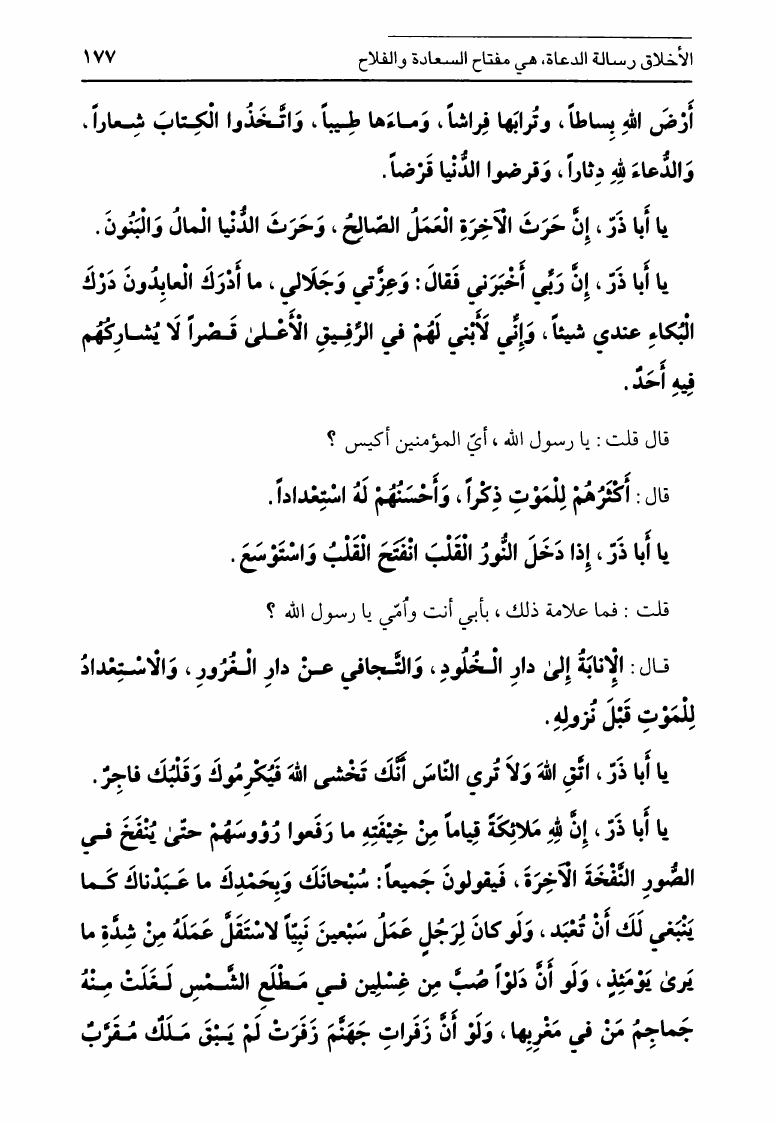 الأخلاق رسالة الدعاة، هي مفتاح السعادة والفلاح ١٧٧
أَرْضَ اللهِ بِساطاً، وتُرابَها فِراشاً، وَمـاءَها طِـيباً، وَاتَّـخَذُوا الْكِـتابَ شِـعاراً،
وَالدُّعاءَ لِلهِ دِثاراً، وَقرضوا الدُّنْيا قَرْضاً.
يا أَبا ذَرّ، إِنَّ حَرَثَ الْآخِرَةِ الْعَمَلُ الصّالِحُ، وَحَرَثَ الدُّنْيا الْمالُ وَالْبَنُونَ.
يا أَبا ذَرّ، إِنَّ رَبِّي أَخْبَرَني فَقالَ: وَعِزَّتي وَجَلَالي، ما أَدْرَكَ الْعابِدُونَ دَرْكَ
الْبُكاءِ عندي شيئاً، وَإِنِّي لَأَبْني لَهُمْ في الرَّفِـيقِ الْأَعْـلىٰ قَـصْراً لَا يُشـارِكُهُم
فِيهِ أَحَدٌ.
قال قلت: يا رسول الله، أيّ المؤمنين أكيس ؟
قال: أَكْثَرُهُمْ لِلْمَوْتِ ذِكْراً، وَأَحْسَنُهُمْ لَهُ اسْتِعْداداً.
يا أَبا ذَرّ، إِذا دَخَلَ النُّورُ الْقَلْبَ انْفَتَحَ الْقَلْبُ وَاسْتَوْسَعَ.
قلت : فما علامة ذلك، بأبي أنت وأُمّي يا رسول الله ؟
قـال: الْإِنابَةُ إِلىٰ دارِ الْـخُلُودِ، وَالتَّـجافي عـنْ دارِ الْـغُرُورِ، وَالْاسْـتِعْدادُ
لِلْمَوْتِ قَبْلَ نُزولِهِ.
يا أَبا ذَرّ، اتَّقِ اللهَ وَلاَ تُري النّاسَ أَنَّكَ تَخْشى اللهَ فَيُكْرِمُوكَ وَقَلْبُكَ فاجِرٌ.
يا أَبا ذَرّ، إِنَّ لِلهِ مَلائِكَةً قِياماً مِنْ خِيْفَتِهِ ما رَفَعوا رُؤُوسَهُمْ حتّىٰ يُنْفَخَ فـي
الصُّورِ النَّفْخَةَ الْآخِرَةَ، فَيقولونَ جَميعاً: سُبْحانَكَ وَبِحَمْدِكَ ما عَـبَدْناكَ كَـما
يَنْبَغي لَكَ أَنْ تُعْبَد، وَلَو كانَ لِرَجُلٍ عَمَلُ سَبْعينَ نَبِيّاً لاسْتَقَلَّ عَمَلَهُ مِنْ شِدَّةِ ما
يَرىٰ يَوْمَئِذٍ، وَلَو أَنَّ دَلوْاً صُبَّ مِن غِسْلِين فـي مَـطْلَعِ الشَّـمْسِ لَـغَلَتْ مِـنْهُ
جَماجِمُ مَنْ في مَغْرِبِها، وَلَوْ أَنَّ زَفَراتِ جَهَنَّمَ زَفَرَتْ لَمْ يَـبْقَ مَـلَكٌ مُـقَرَّبٌ